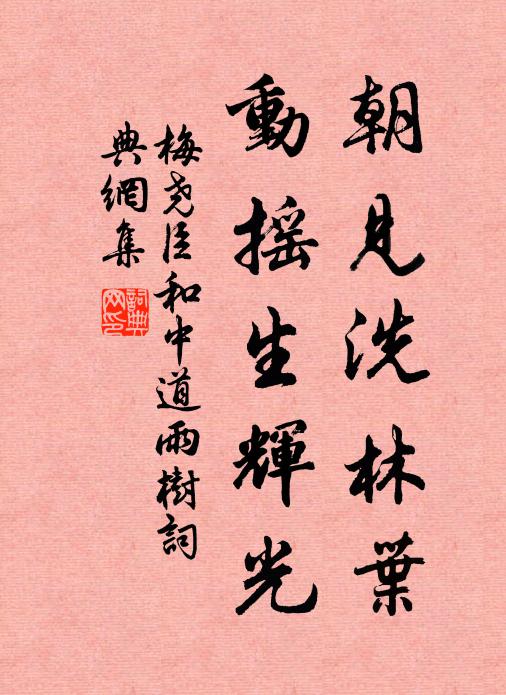 朝見洗林葉
動搖生輝光
梅堯臣和中道雨樹詞
典網集
詞典網印